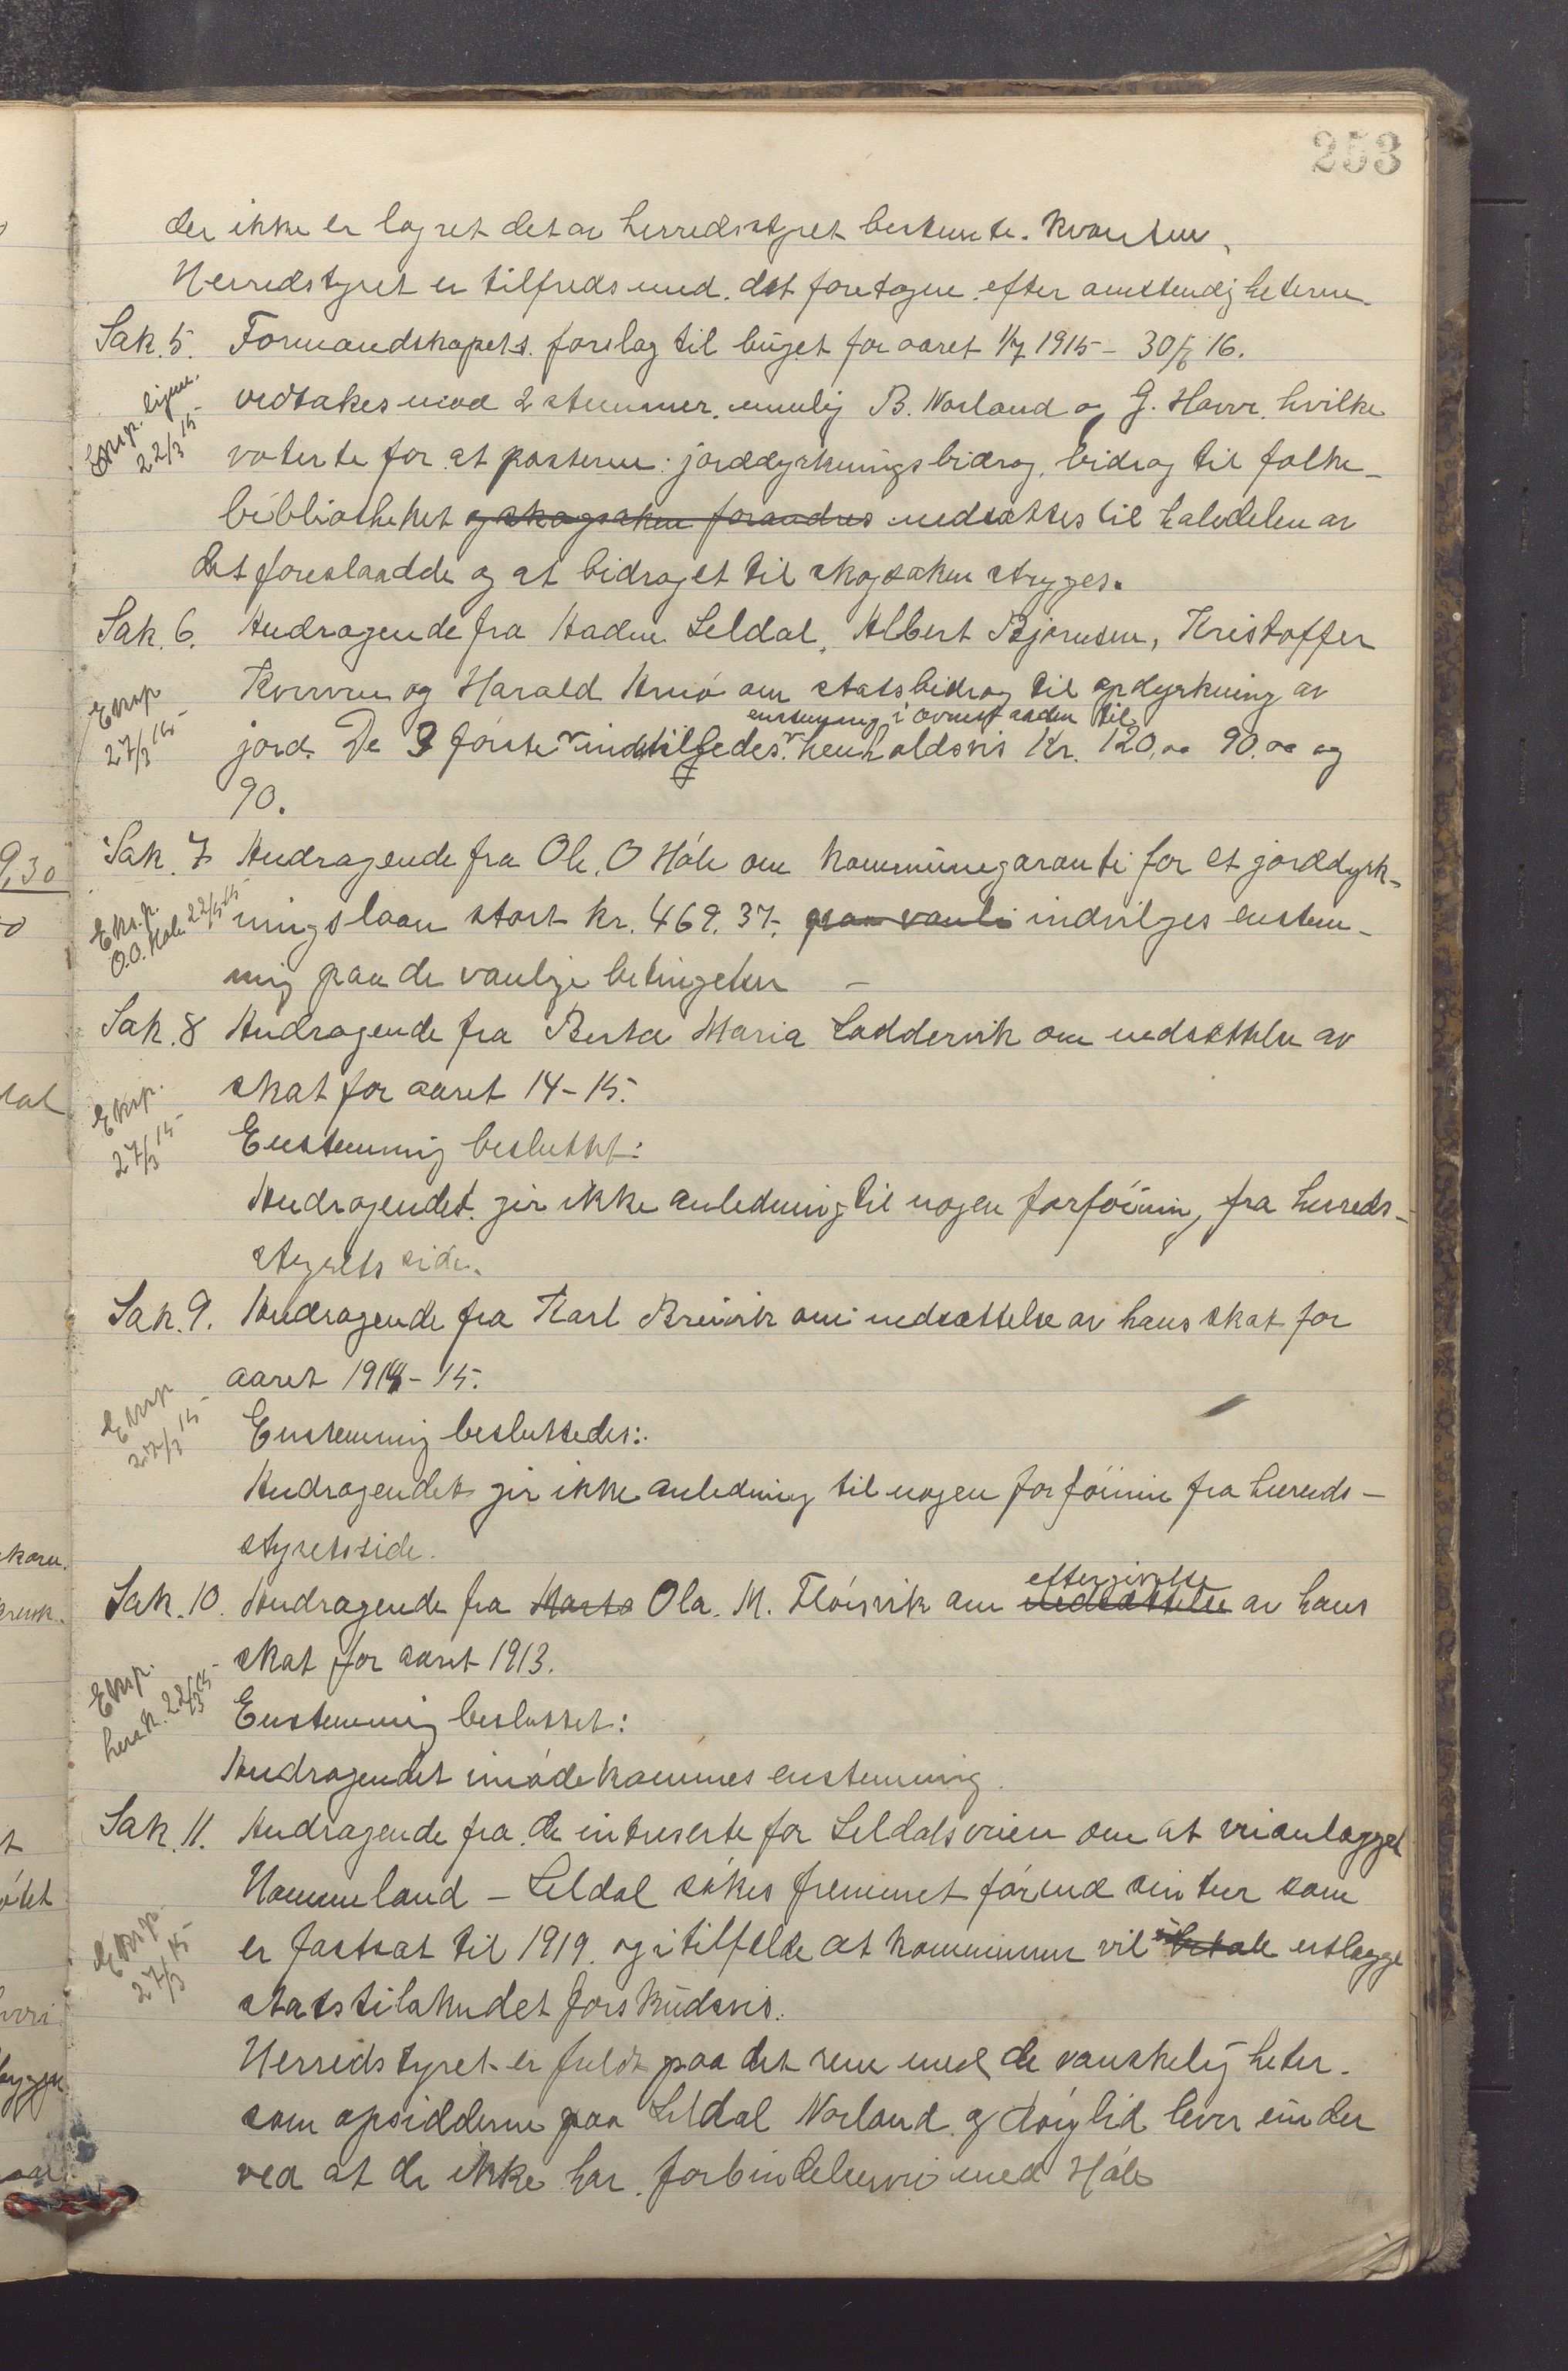 253
der ikke er lagret det av herredsstyret bestemte. kvantum.
Herredstyret er tilfreds med det foretagne efter omstendigheterne.
Sak. 5. Formandskapets forslag til büget for aaret 1/7 1915 – 30/6 16.
Eksp. lignn. 22/3 15
vedtakes mod 2 stemmer. nemlig B. Norland og G. Havr. hvilke
voterte for at posterne: jorddyrkningsbidrag, bidrag til folke-
bibliotheket og skogsaken forandres nedsættes til halvdelen av
det foreslaadde og at bidraget til skogsaken stryges.
Sak. 6. Andragende fra Aadne Leldal, Albert Bjørnsen, Kristoffer
Eksp. 27/3 15
Kverven og Harald Amø om statsbidrag til opdyrkning av
enstemmig i til
jord. De 3 første indvilgedes henholdsvis Kr. 120,00 90.00 og
90.
Sak. 7 Andragende fra Ole. O Høle om kommünegaranti for et jorddyrk-
Eksp. O.O. Høle 22/3 15
ningslaan stort kr. 469.37, paa vanli indvilges enstem-
mig paa de vanlige betingelser –
Sak. 8 Andragende fra Berta Maria Loddervik om nedsættelse av
skat for aaret 14–15.
Eksp. 27/3 15
Enstemmig besluttet:
Andragendet gir ikke anledning til nogen forføining fra herreds-
styrets side.
Sak. 9. Andragende fra Karl Breivik om nedsættelse av hans skat for
aaret 1914–15.
Eksp 27/3 15
Enstemmig besluttedes:
Andragendet gir ikke anledning til nogen forføinin fra herreds-
styrets side.
eftergivelse
Sak. 10. Andragende fra Marta Ola. M. Fløisvik om nedsættelse av hans
skat for aaret 1913.
Eksp. herak. 22/3 15
Enstemmig besluttet:
Andragendet imødekommes enstemmig.
Sak. 11. Andragende fra de intreserte for Leldalsveien om at veianlægget
Hommeland – Leldal søkes fremmet førend sin tur som
Eksp. 27/3 15
er fastsat til 1919. og i tilfelde at kommunen vil betale utlægge
statstilskudet forsküdsvis.
Herredstyret er fuldt paa det rene med de vanskeligheter.
som opsidderne paa Leldal Norland og Röiglid lever ünder
ved at de ikke har forbindelsesvei med Høle